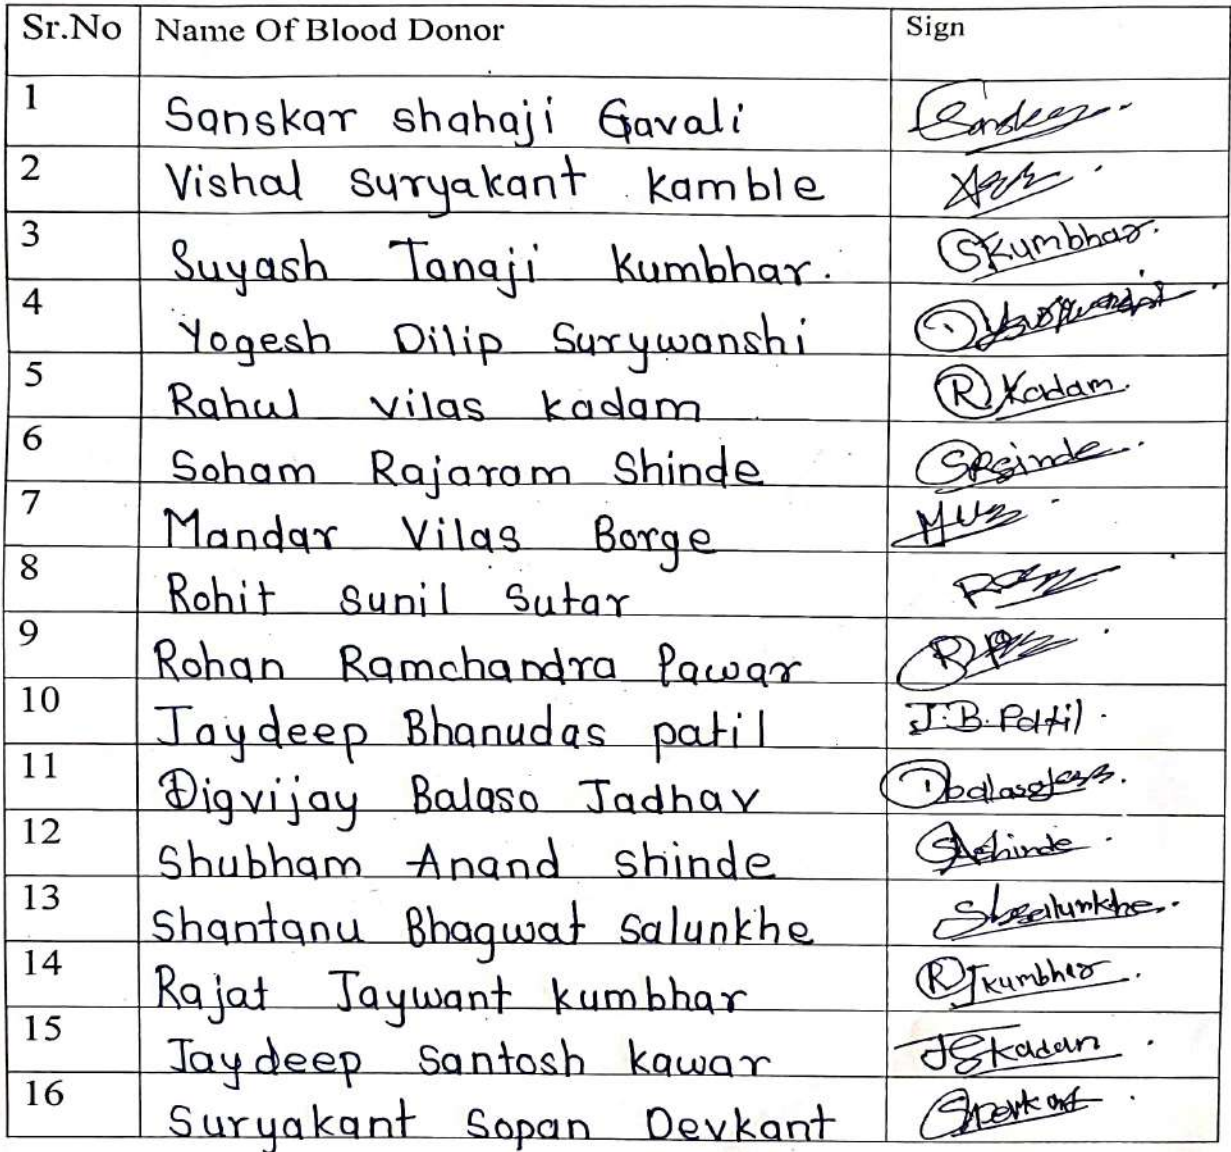 Sr.No Name Of Blood Donor Sign
1 Sanskar shahaji Gavali
2 Vishal suryakant kamble
3 Suyash Tanaji kumbhar. SKumbhar.
4 Yogesh Dilip Surywanshi
5 Rahul vilas kadam R.Kadam.
6 Soham Rajaram Shinde
7 Mandar Vilas Borge
8 Rohit sunil Sutar
9 Rohan Ramchandra Pawar
10 Jaydeep Bhanudas patil J.B.Patil.
11 Digvijay Balaso Jadhav
12 Shubham Anand shinde
13 Shantanu Bhagwat Salunkhe
14 Rajat Jaywant kumbhar RJkumbhar.
15 Jaydeep Santosh kawar
16 Suryakant Sopan Devkant